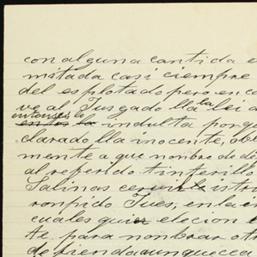 con alguna cantida e
mitada casi ciempre
del esplotado pero en ca
ve al Jusgado lla la lei a
entonses la
indulta porq
clarado lla inocente, obl
mente a que nombre de de
al referido tinterillo
Salinas
rompido Jues, en la ei
cuales quier elecion e
te, para nombrar otr
defienda aunque cea